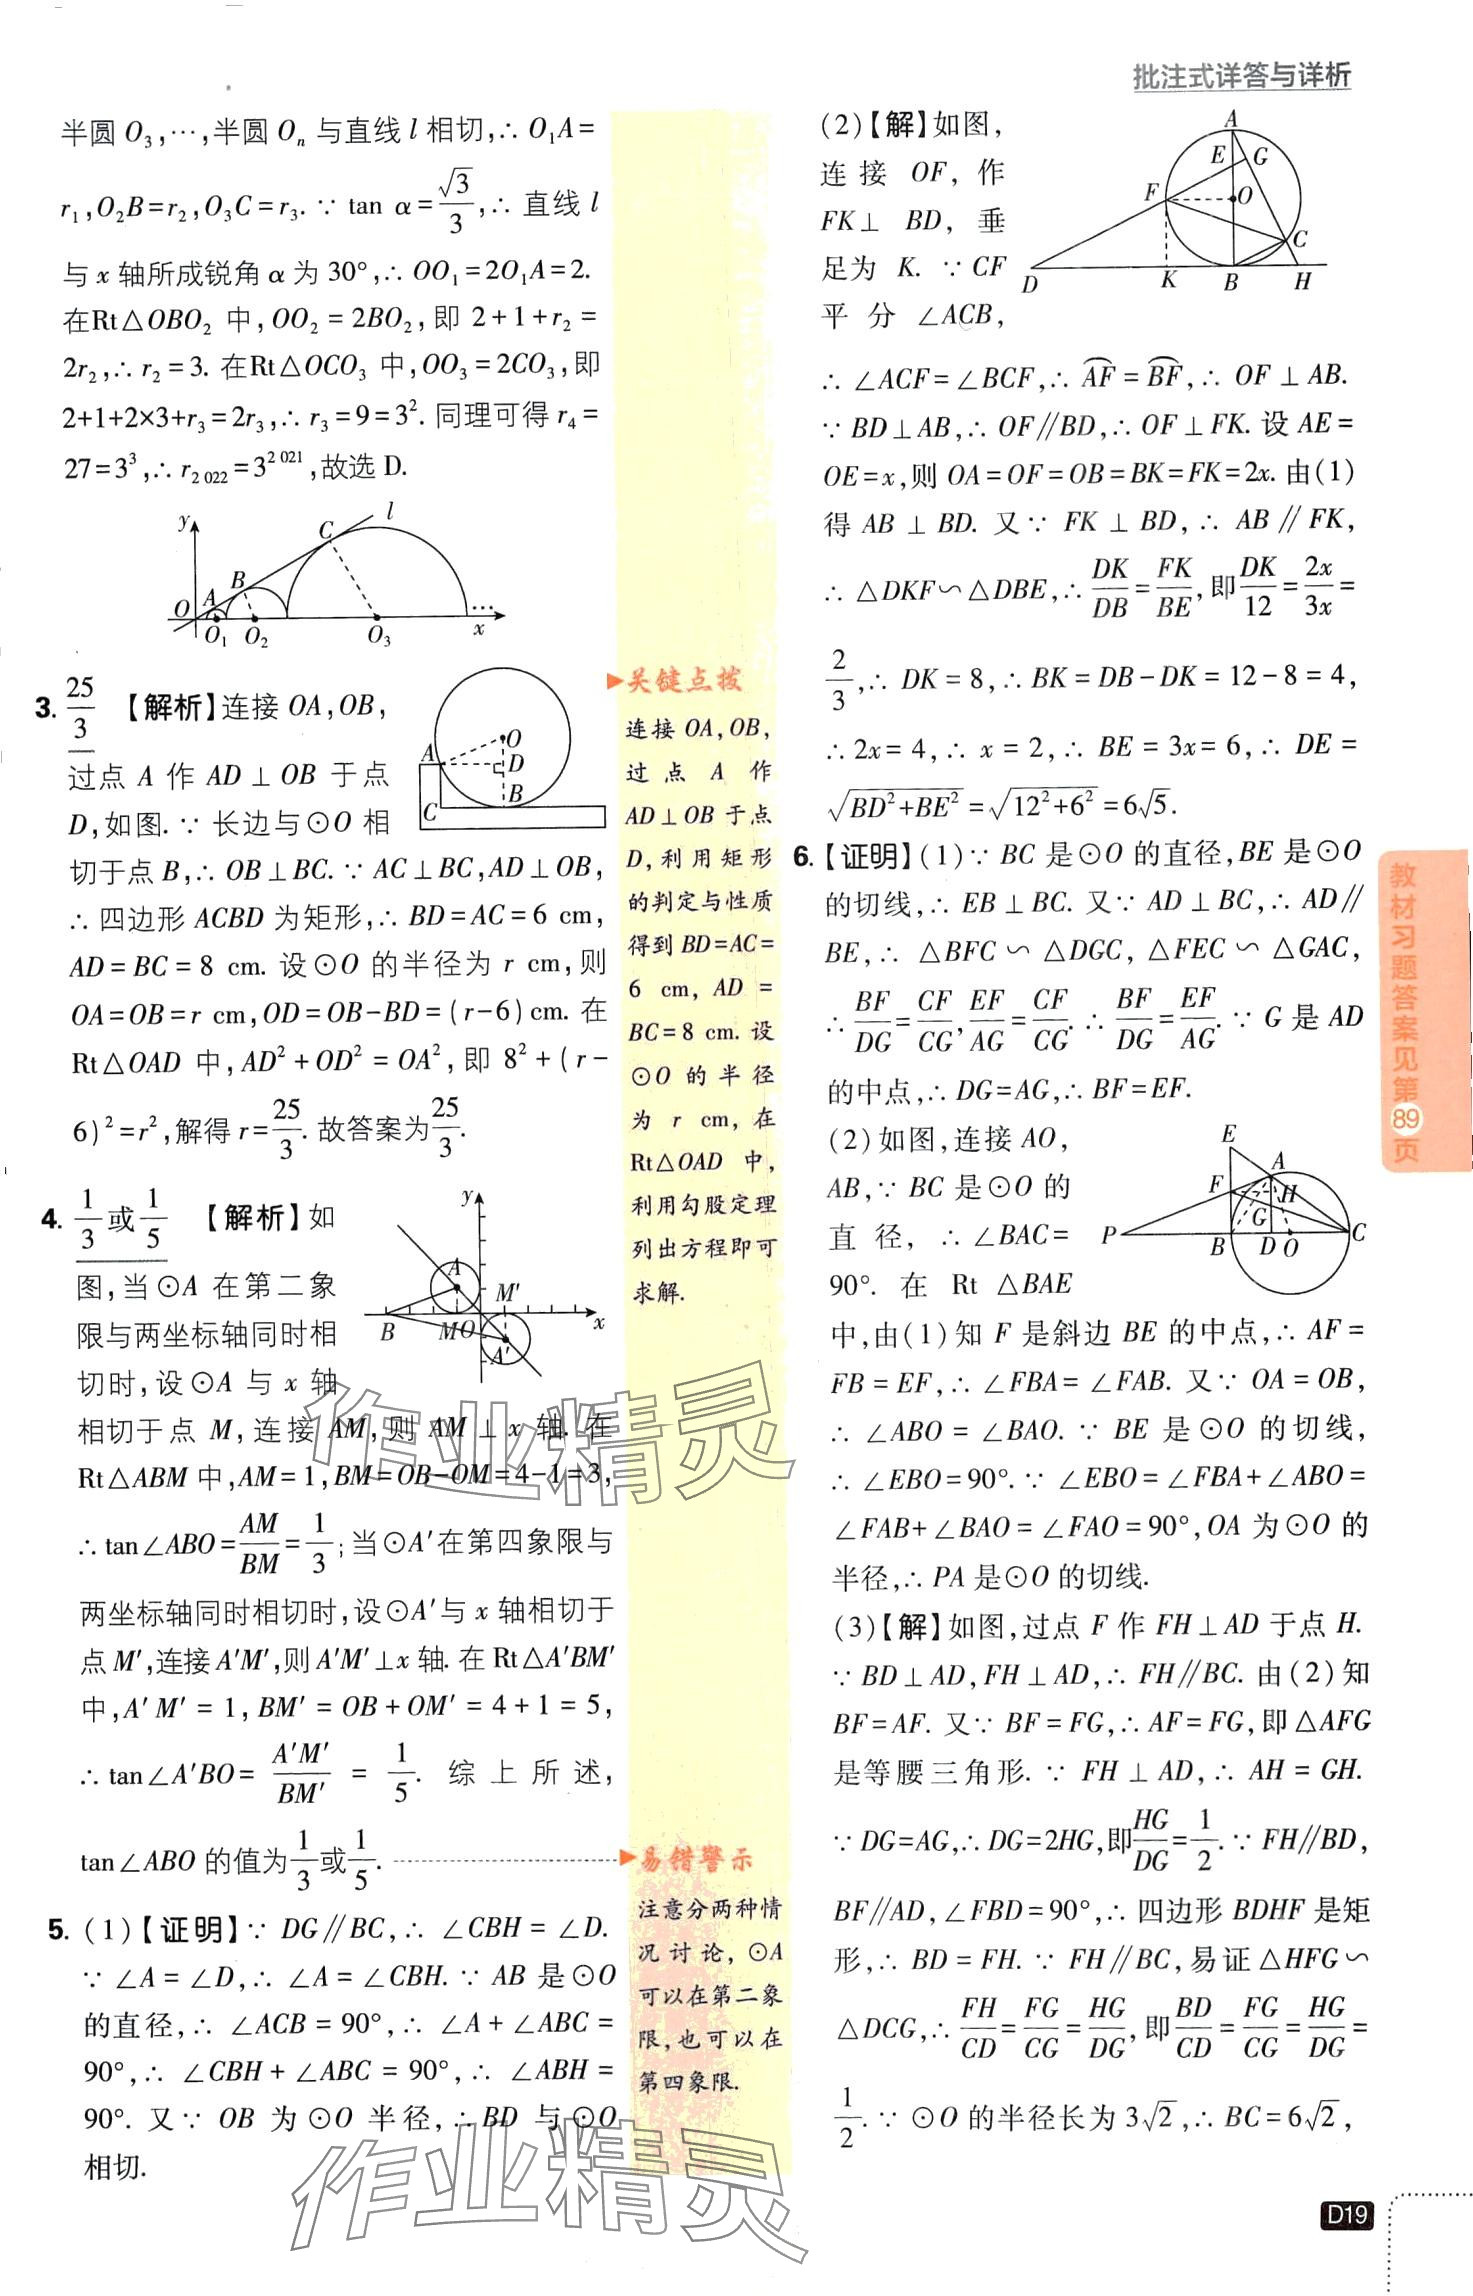 批注式详答与详析
半圆 O₃,…,半圆 Oₙ 与直线 l 相切,∴ O₁A=
r₁,O₂B=r₂,O₃C=r₃. ∵ tan α=√3/3,∴ 直线 l
与 x 轴所成锐角 α 为 30°,∴ OO₁=2O₁A=2.
在Rt△OBO₂ 中,OO₂=2BO₂,即 2+1+r₂=
2r₂,∴ r₂=3. 在Rt△OCO₃ 中,OO₃=2CO₃,即
2+1+2×3+r₃=2r₃,∴ r₃=9=3². 同理可得 r₄=
27=3³,∴ r₂₀₂₂=3²⁰²¹,故选 D.
y
l
C
B
A
O
O₁
O₂
O₃
x
…
3. 25/3 【解析】连接 OA,OB,
过点 A 作 AD⊥OB 于点
D,如图. ∵ 长边与⊙O 相
切于点 B,∴ OB⊥BC. ∵ AC⊥BC,AD⊥OB,
∴ 四边形 ACBD 为矩形,∴ BD=AC=6 cm,
AD=BC=8 cm. 设⊙O 的半径为 r cm,则
OA=OB=r cm,OD=OB-BD=(r-6)cm. 在
Rt△OAD 中,AD²+OD²=OA²,即 8²+(r-
6)²=r²,解得 r=25/3. 故答案为25/3.
A
O
D
B
C
4. 1/3或1/5 【解析】如
图,当⊙A 在第二象
限与两坐标轴同时相
切时,设⊙A 与 x 轴
相切于点 M,连接 AM,则 AM⊥x 轴. 在
Rt△ABM 中,AM=1,BM=OB-OM=4-1=3,
∴ tan∠ABO=AM/BM=1/3;当⊙A′在第四象限与
两坐标轴同时相切时,设⊙A′与 x 轴相切于
点 M′,连接 A′M′,则 A′M′⊥x 轴. 在 Rt△A′BM′
中,A′M′=1,BM′=OB+OM′=4+1=5,
∴ tan∠A′BO=A′M′/BM′=1/5. 综上所述,
tan∠ABO 的值为1/3或1/5.
y
A
M′
B
M
O
x
A′
5. (1)【证明】∵ DG∥BC,∴ ∠CBH=∠D.
∵ ∠A=∠D,∴ ∠A=∠CBH. ∵ AB 是⊙O
的直径,∴ ∠ACB=90°,∴ ∠A+∠ABC=
90°,∴ ∠CBH+∠ABC=90°,∴ ∠ABH=
90°. 又∵ OB 为⊙O 半径,∴BD 与⊙O
相切.
关键点拨
连接 OA,OB,
过点 A 作
AD⊥OB 于点
D,利用矩形
的判定与性质
得到 BD=AC=
6 cm,AD=
BC=8 cm. 设
⊙O 的半径
为 r cm,在
Rt△OAD 中,
利用勾股定理
列出方程即可
求解.
易错警示
注意分两种情
况讨论,⊙A
可以在第二象
限,也可以在
第四象限.
(2)【解】如图,
连接 OF,作
FK⊥BD,垂
足为 K. ∵ CF
平分∠ACB,
A
E
G
F
O
C
D
K
B
H
∴ ∠ACF=∠BCF,∴ A͡F=B͡F,∴ OF⊥AB.
∵ BD⊥AB,∴ OF∥BD,∴ OF⊥FK. 设 AE=
OE=x,则 OA=OF=OB=BK=FK=2x. 由(1)
得 AB⊥BD. 又∵ FK⊥BD,∴ AB∥FK,
∴ △DKF∽△DBE,∴ DK/DB=FK/BE,即DK/12=2x/3x=
2/3,∴ DK=8,∴ BK=DB-DK=12-8=4,
∴ 2x=4,∴ x=2,∴ BE=3x=6,∴ DE=
√(BD²+BE²)=√(12²+6²)=6√5.
6. 【证明】(1)∵ BC 是⊙O 的直径,BE 是⊙O
的切线,∴ EB⊥BC. 又∵ AD⊥BC,∴ AD∥
BE,∴ △BFC∽△DGC,△FEC∽△GAC,
∴ BF/DG=CF/CG,EF/AG=CF/CG. ∴ BF/DG=EF/AG. ∵ G 是 AD
的中点,∴ DG=AG,∴ BF=EF.
(2)如图,连接 AO,
AB,∵ BC 是⊙O 的
直径,∴ ∠BAC=
90°. 在 Rt△BAE
中,由(1)知 F 是斜边 BE 的中点,∴ AF=
FB=EF,∴ ∠FBA=∠FAB. 又∵ OA=OB,
∴ ∠ABO=∠BAO. ∵ BE 是⊙O 的切线,
∴ ∠EBO=90°. ∵ ∠EBO=∠FBA+∠ABO=
∠FAB+∠BAO=∠FAO=90°,OA 为⊙O 的
半径,∴ PA 是⊙O 的切线.
E
A
F
H
G
P
B
D
O
C
(3)【解】如图,过点 F 作 FH⊥AD 于点 H.
∵ BD⊥AD,FH⊥AD,∴ FH∥BC. 由(2)知
BF=AF. 又∵ BF=FG,∴ AF=FG,即△AFG
是等腰三角形. ∵ FH⊥AD,∴ AH=GH.
∵ DG=AG,∴ DG=2HG,即HG/DG=1/2. ∵ FH∥BD,
BF∥AD,∠FBD=90°,∴ 四边形 BDHF 是矩
形,∴ BD=FH. ∵ FH∥BC,易证△HFG∽
△DCG,∴ FH/CD=FG/CG=HG/DG,即BD/CD=FG/CG=HG/DG=
1/2. ∵ ⊙O 的半径长为 3√2,∴ BC=6√2,
教材习题答案见第89页
D19
作业精灵
作业精灵